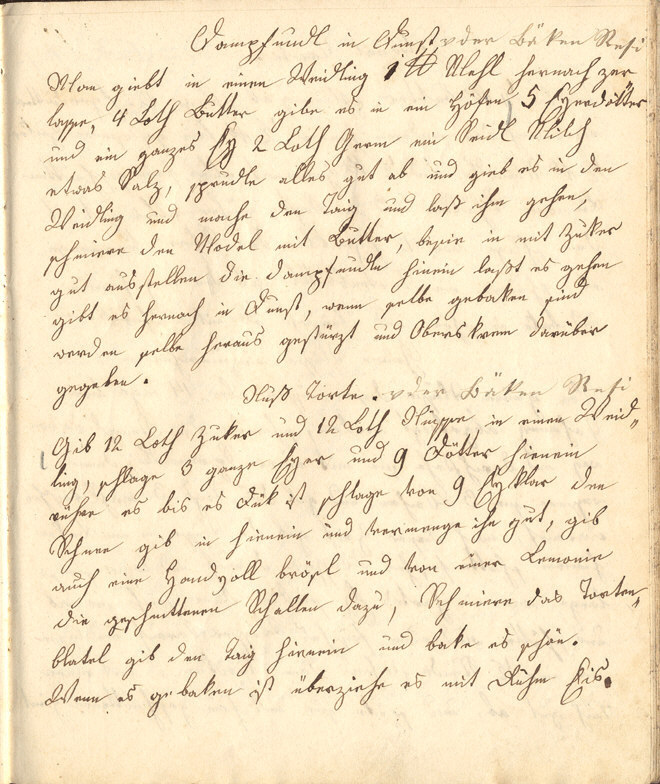 Dampfnudl in Dunst oder Bäken Resi
Man giebt in einen Weidling 1 ℔ Mehl hernach zer
lasse, 4 Loth Butter gibe es in ein Höfen 5 Eyerdötter
und ein ganzes Ey 2 Loth Germ ein Seidl Milch
etwas Salz, sprudle alles gut ab und gieb es in den
Weidling und mache den Taig und laß ihm gehen,
schmiere den Model mit Butter, in mit Zuker
gut ausstellen die Dampfnudle hinein laßt es gehen
gibt es hernach in Dunst, wenn selbe gebaken sind
werden selbe heraus gestürzt und Oberskrem darüber
gegeben.
Nuß Torte. oder Bäken Resi
Gib 12 Loth Zuker und 12 Loth Nüsse in einen Weid„
ling, schlage 3 ganze Eyer und 9 Dötter hienein
rühre es bis es Dük ist schlage von 9 Eyklar den
Schnee gib in hienein und vermenge ihn gut, gib
auch eine Handvoll brösl und von einer Lemonie
die geschnittenen Schallen dazu, Schmiere das Torten„
blatel gib den Taig hienein und bake es schön.
Wenn es gebaken ist überziehe es mit Eis.